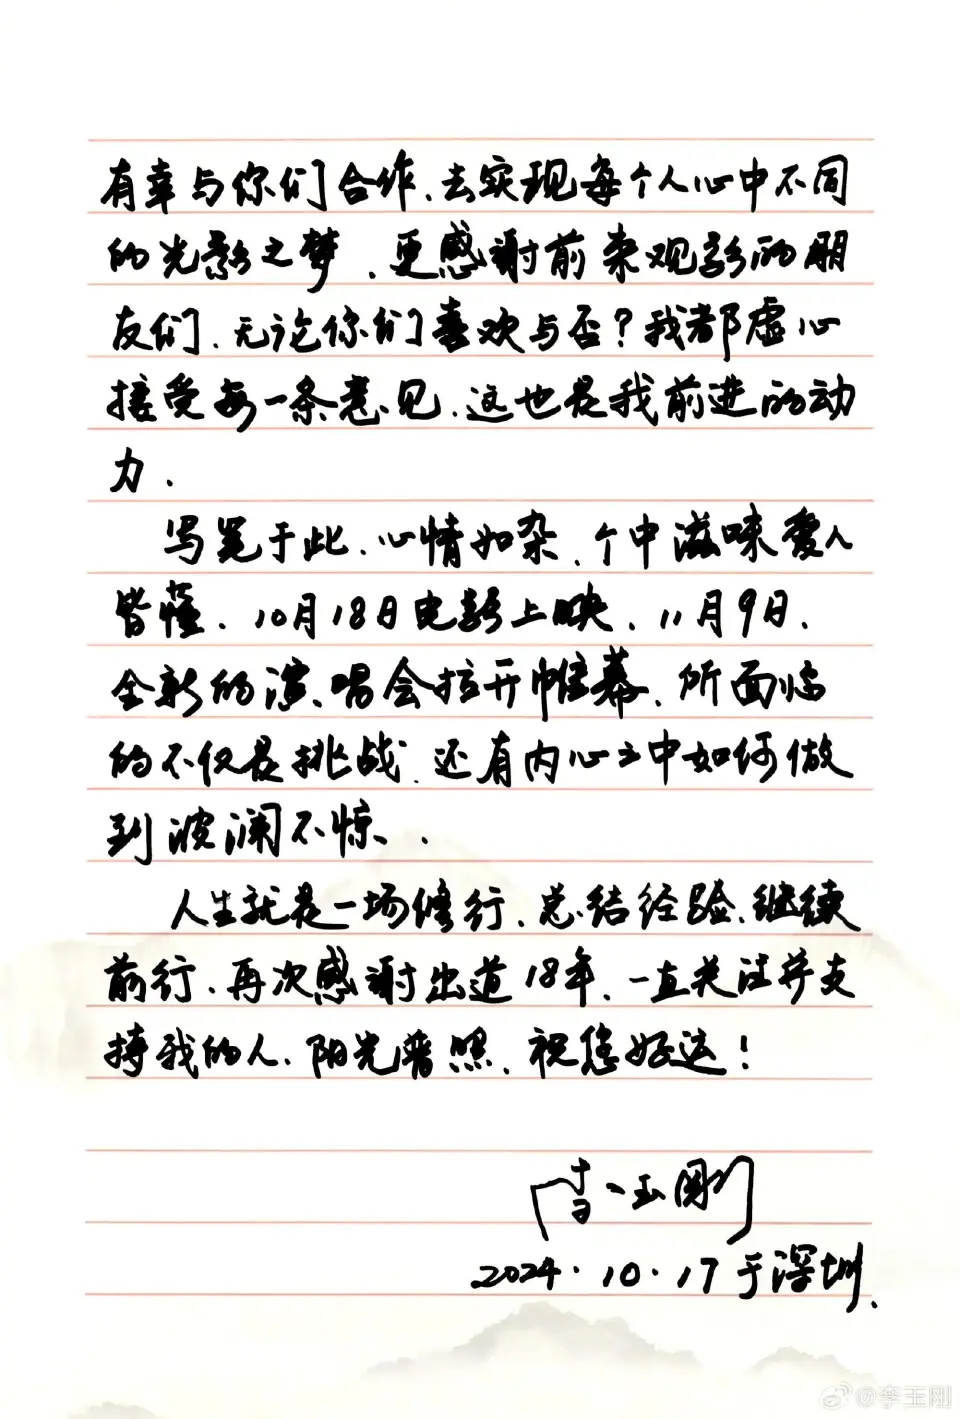 有幸与你们合作、去实现每个人心中不同
的光影之梦、更感谢前来观影的朋
友们、无论你们喜欢与否?我都虚心
接受每一条意见、这也是我前进的动
力.
写笔于此、心情如杂、个中滋味爱人
皆懂、10月18日电影上映、11月9日、
全新的演唱会拉开帷幕、所面临
的不仅是挑战、还有内心之中如何做
到波澜不惊、.
人生就是一场修行、总结经验、继续
前行、再次感谢出道18年、一直关注并支
持我的人、阳光普照、祝您好运!
李玉刚
2024.10.17于深圳、
@李玉刚